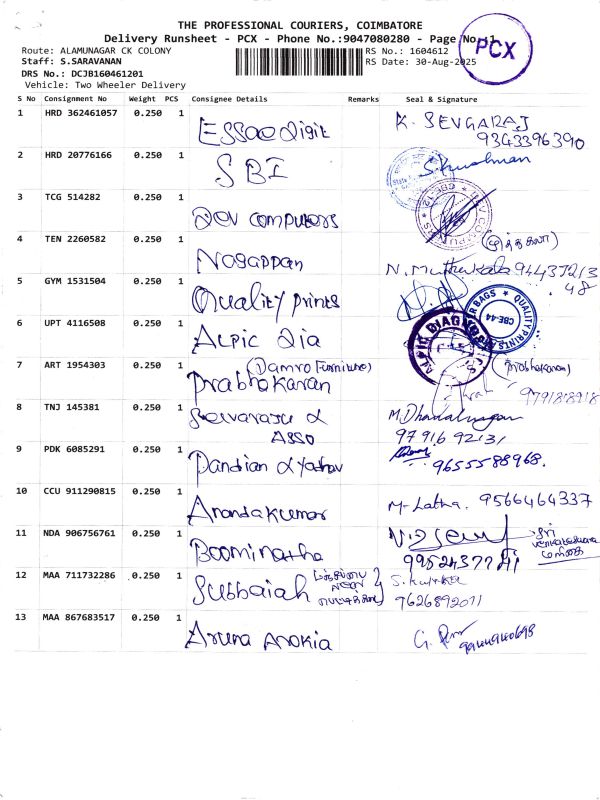 THE PROFESSIONAL COURIERS, COIMBATORE
Delivery Runsheet - PCX - Phone No.:9047080280 - Page No. 1
PCX
Route: ALAMUNAGAR CK COLONY
RS No.: 1604612
Staff: S.SARAVANAN
RS Date: 30-Aug-2025
DRS No.: DCJB160461201
Vehicle: Two Wheeler Delivery
S No Consignment No Weight PCS Consignee Details Remarks Seal & Signature
1 HRD 362461057 0.250 1 Essae digit K. SENGARAJ
9343396390
2 HRD 20776166 0.250 1 SBI
3 TCG 514282 0.250 1 Dev computers
4 TEN 2260582 0.250 1 Nagappan N. Muthukala 94437213
48
5 GYM 1531504 0.250 1 Quality prints
QUALITY PRINTS
CBE-44
6 UPT 4116508 0.250 1 Alpic Dia
7 ART 1954303 0.250 1 (Damro Furniture) Prabhakaran (Prabhakaran)
9791818918
8 TNJ 145381 0.250 1 Selvaraju & Asso M. Dhanalnagan
97916 92131
9 PDK 6085291 0.250 1 Pandian & Yadhav 9655588968.
10 CCU 911290815 0.250 1 Anandakumar M-Latha. 9566464337
11 NDA 906756761 0.250 1 Boominatha
12 MAA 711732286 0.250 1 Subbaiah
7626892071
13 MAA 867683517 0.250 1 Aruna Arokia